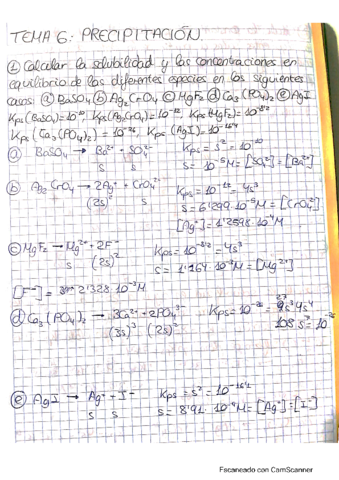 TEMA 6: PRECIPITACIÓN.
① Calcular la solubilidad y las concentraciones en
equilibrio de las diferentes especies en los siguientes
casos: ⓐ BaSO₄ ⓑ Ag₂CrO₄ ⓒ MgF₂ ⓓ Ca₃(PO₄)₂ ⓔ AgI
Kps(BaSO₄)=10⁻¹⁰ Kps(Ag₂CrO₄)=10⁻¹² Kps(MgF₂)=10⁻⁸'²
Kps(Ca₃(PO₄)₂)=10⁻²⁶, Kps(AgI)=10⁻¹⁶'¹
ⓐ BaSO₄ → Ba²⁺ + SO₄²⁻ Kps = s² = 10⁻¹⁰
s s s = 10⁻⁵M = [SO₄²⁻] = [Ba²⁺]
ⓑ Ag₂CrO₄ → 2Ag⁺ + CrO₄²⁻ Kps = 10⁻¹² = 4s³
(2s)² s s = 6'299·10⁻⁵M = [CrO₄²⁻]
[Ag⁺] = 1'2598·10⁻⁴M
ⓒ MgF₂ → Mg²⁺ + 2F⁻ Kps = 10⁻⁸'² = 4s³
s (2s)² s = 1'164·10⁻³M = [Mg²⁺]
[F⁻] = 2'328·10⁻³M
ⓓ Ca₃(PO₄)₂ → 3Ca²⁺ + 2PO₄³⁻ Kps = 10⁻²⁶ = 27s³4s²
(3s)³ (2s)² 108 s⁵ = 10⁻²⁶
ⓔ AgI → Ag⁺ + I⁻ Kps = s² = 10⁻¹⁶'¹
s s s = 8'91·10⁻⁹M = [Ag⁺] = [I⁻]
Escaneado con CamScanner